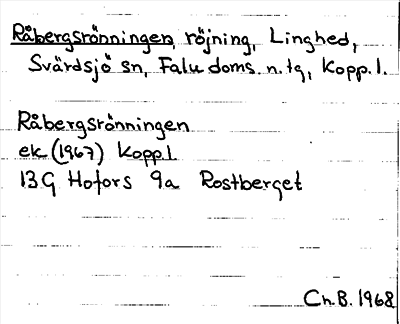 Råbergsrönningen, röjning, Linghed,
Svärdsjö sn, Falu doms. n. tg, Kopp. l.
Råbergsrönningen
ek (1967) Kopp. l.
13G Hofors 9a Rostberget
Ch.B. 1968